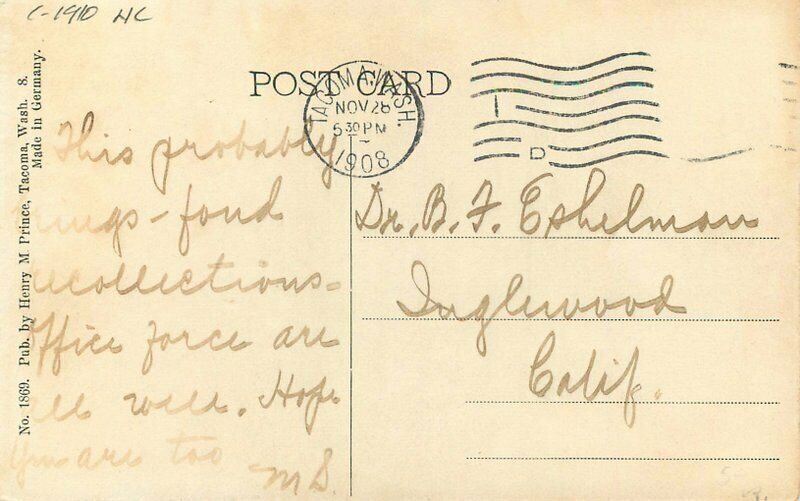 C-1910 HC
POST CARD
TACOMA, WASH.
NOV 28
530 PM
1908
D
No. 1869. Pub. by Henry M. Prince, Tacoma, Wash. 8.
Made in Germany.
This probably
ings - fond
recollections -
Office force are
all well. Hope
you are too
M S.
Dr. B. F. Eshelman
Inglewood
Calif.